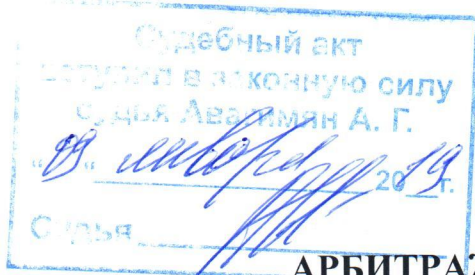 Судебный акт
вступил в законную силу
судья Авагимян А. Г.
"09" января 2019 г.
Судья
АРБИТРАТ